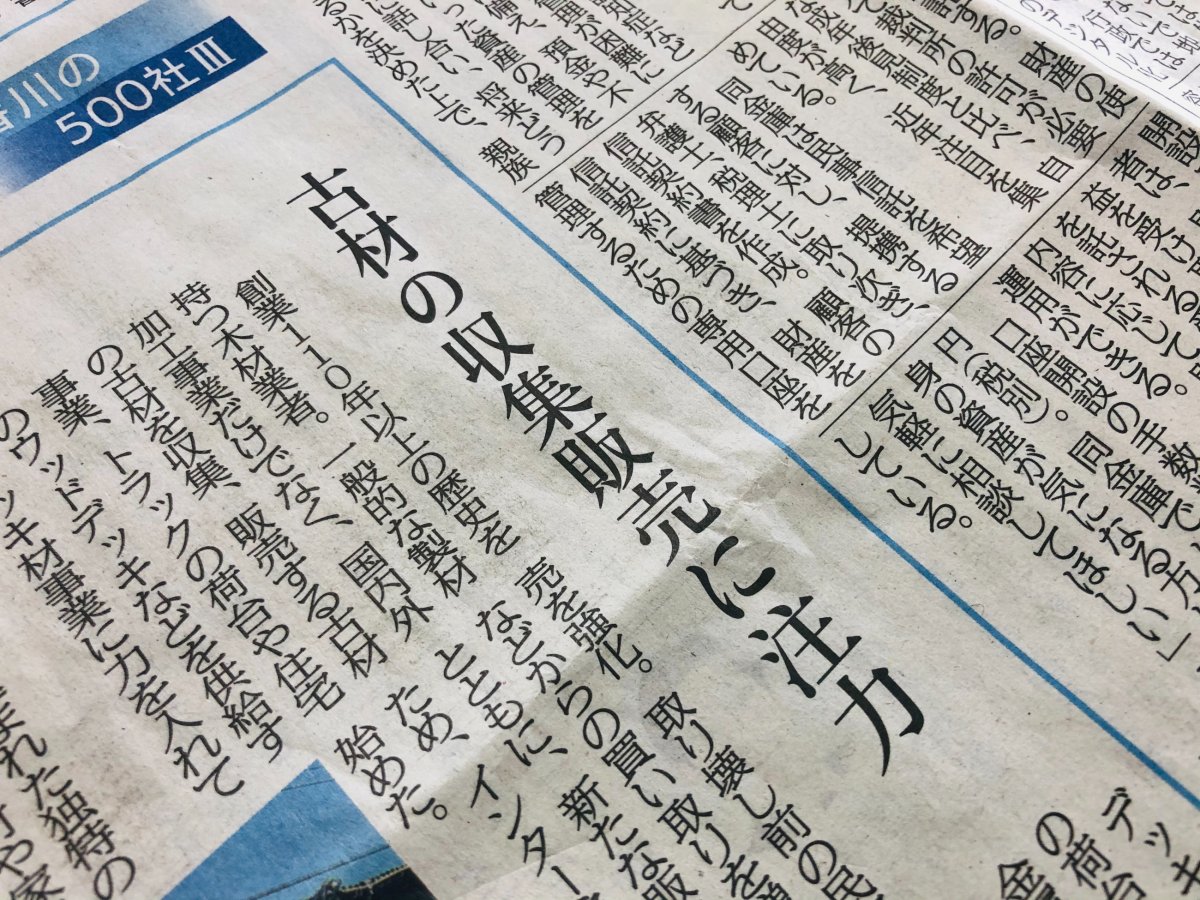 香川の
500社Ⅲ
古材の収集販売に注力
創業110年以上の歴史を
持つ木材業者。一般的な製材
加工事業だけでなく、国内外
の古材を収集、販売する古材
事業、トラックの荷台や住宅
のウッドデッキなどを供給す
ッキ材事業に力を入れて
売を強化。取り壊し前の民
などからの買い取りを
とともに、新たな販
ため、インター
始めた。
まれた独特の
デッキ
の荷台
知症など
管理が困難に
備え、預金や不
いった資産の管理を
に話し合い、将来どう
るかを決めた上で、親族
財産の使
裁判所の許可が必要
な成年後見制度と比べ、自
由度が高く、近年注目を集
めている。
同金庫は民事信託を希望
する顧客に対し、提携する
弁護士、税理士に取り次ぎ、
信託契約書を作成。顧客の
信託契約に基づき、財産を
管理するための専用口座を
開設
者は、
益を受け
を託される
内容に応じて
運用ができる。
口座開設の手数
円(税別)。同金庫で
身の資産が気になる方
気軽に相談してほしい」
している。